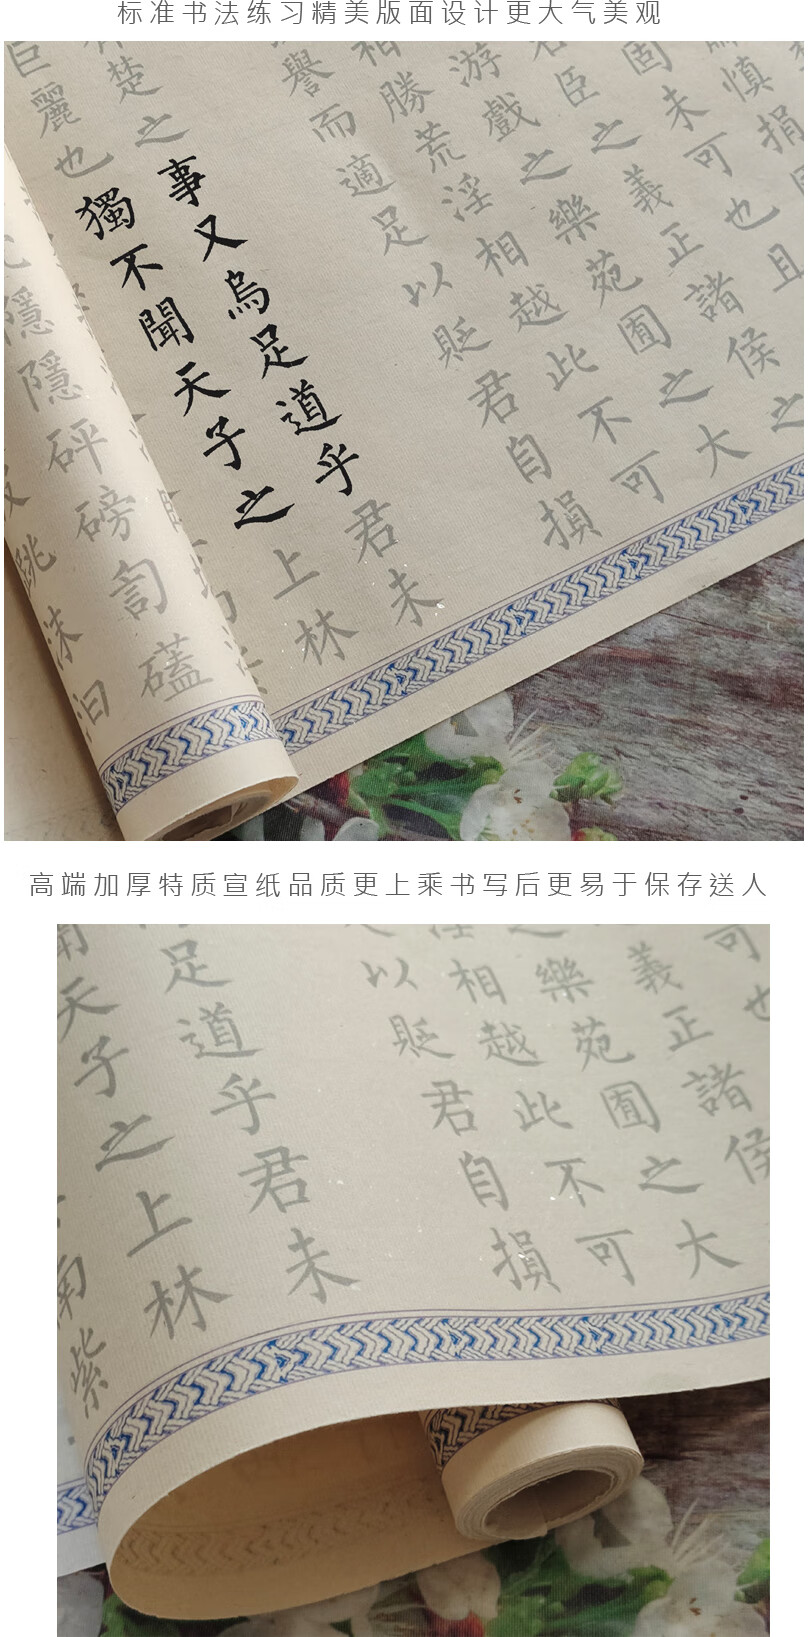 标准书法练习精美版面设计更大气美观
慎捐
固未可也且
君臣之義正諸侯之
游戲之樂苑囿之大
相勝荒淫相越此不可
譽而適足以貶君自損
楚之事又烏足道乎君未
巨麗也獨不聞天子之上林
隱隱砰磅訇礚
跳沫汩
高端加厚特质宣纸品质更上乘书写后更易于保存送人
可也
義正諸侯
之樂苑囿之大
淫相越此不可
以貶君自損
足道乎君未
天子之上林
南紫